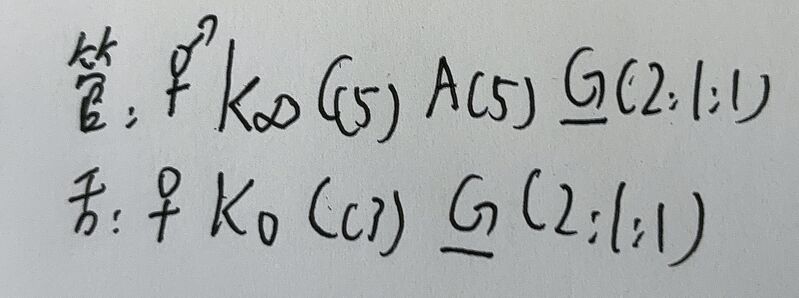 管:⚥ K∞ C(5) A(5) G̲(2:1:1)
舌:♀ K0 (C?) G̲(2:1:1)